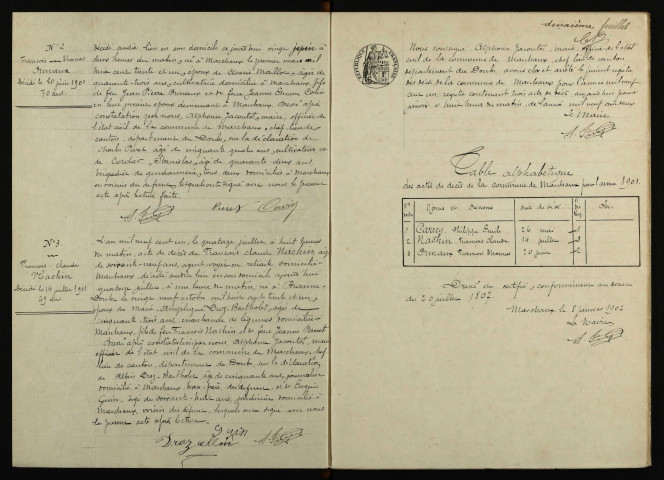 N° 2
François Thomas
Ornaux
Décédé le 20 juin 1901
70 ans
décédé audit lieu en son domicile ce jourd'hui vingt juin à
deux heures du matin, né à Marchaux le premier mars mil
huit cent trente et un, époux de Maillot, âgée de
quarante-trois ans, cultivatrice domiciliée à Marchaux, fils
de feu Jean Pierre Ornaux et de feue Jeanne
en leur vivant époux demeurant à Marchaux. Dressé après
constatation par nous, Alphonse Jacoutot, maire, officier de
l'état civil de la commune de Marchaux, chef-lieu de
canton, département du Doubs, sur la déclaration de
Charles âgé de cinquante quatre ans, cultivateur et
de Cordier, Stanislas, âgé de quarante deux ans,
brigadier de gendarmerie, tous deux domiciliés à Marchaux
et voisins du défunt, lesquels ont signé avec nous le présent
acte après lecture faite.
N° 3.
François Claude
Nachin
Décédé le 14 juillet 1901
69 ans
L'an mil neuf cent un, le quatorze juillet à huit heures
du matin, acte de décès de François Claude Nachin, âgé
de soixante-neuf ans, agent voyer en retraite domicilié à
Marchaux, décédé audit lieu en son domicile aujourd'hui
quatorze juillet, à une heure du matin, né à
Doubs, le vingt neuf octobre mil huit cent trente et un,
époux de Marie Angélique Droz-Bartholet, âgée de
cinquante-trois ans, marchande de légumes domiciliée à
Marchaux, fils de feu François Nachin et de feue Jeanne
Dressé après constatation par nous, Alphonse Jacoutot, maire
officier de l'état civil de la commune de Marchaux, chef-
lieu de canton, département du Doubs, sur la déclaration
de Albin Droz-Bartholet âgé de cinquante ans, journalier
domicilié à Marchaux, beau-frère du défunt, et de Eugène
âgé de soixante-huit ans, jardinier domicilié à
Marchaux, voisin du défunt, lesquels ont signé avec nous
le présent acte après lecture.
Droz albin
deuxième feuillet
Nous soussigné Alphonse Jacoutot, maire, officier de l'état
civil de la commune de Marchaux, chef-lieu de canton
département du Doubs, avons clos et arrêté le présent registre
des décès de la commune de Marchaux pour l'année mil neuf
cent un, registre contenant trois actes de décès aujourd'hui premier
janvier à huit heures du matin, de l'année mil neuf cent deux
Le Maire
Table alphabétique
des actes de décès de la commune de Marchaux pour l'année 1901.
Noms et Prénoms
Date du décès
1 Philippe Emile 26 mai 1
2 Nachin François Claude 14 juillet 3
3 Ornaux François Thomas 20 juin 2
Dressé et certifié, conformément au décret
du 20 juillet 1807.
Marchaux le 1er janvier 1902
Le Maire